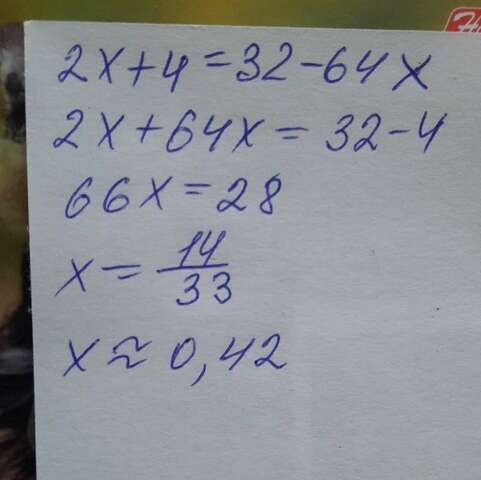 2x+4=32-64x
2x+64x=32-4
66x=28
x=14/33
x≈0,42